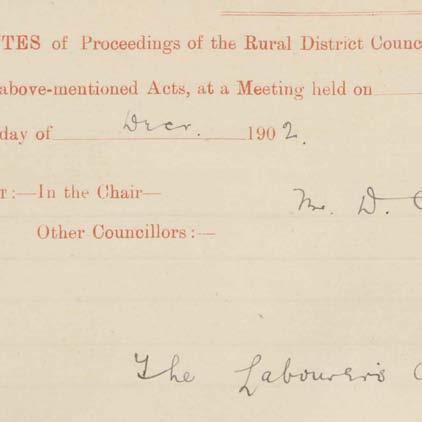 TES of Proceedings of the Rural District Counc
above-mentioned Acts, at a Meeting held on
day of Decr. 1902.
T:—In the Chair— Mr. D.
Other Councillors:—
The Labourers